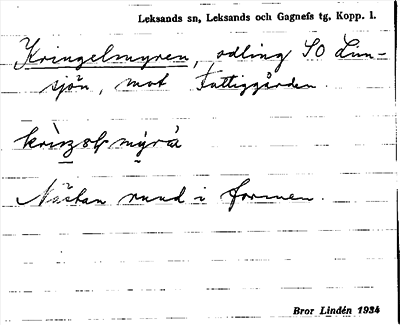 Leksands sn, Leksands och Gagnefs tg, Kopp. l.
Kringelmyren, odling SO Lim-
sjön, mot Fattiggården.
Nästan rund i formen.
Bror Lindén 1934